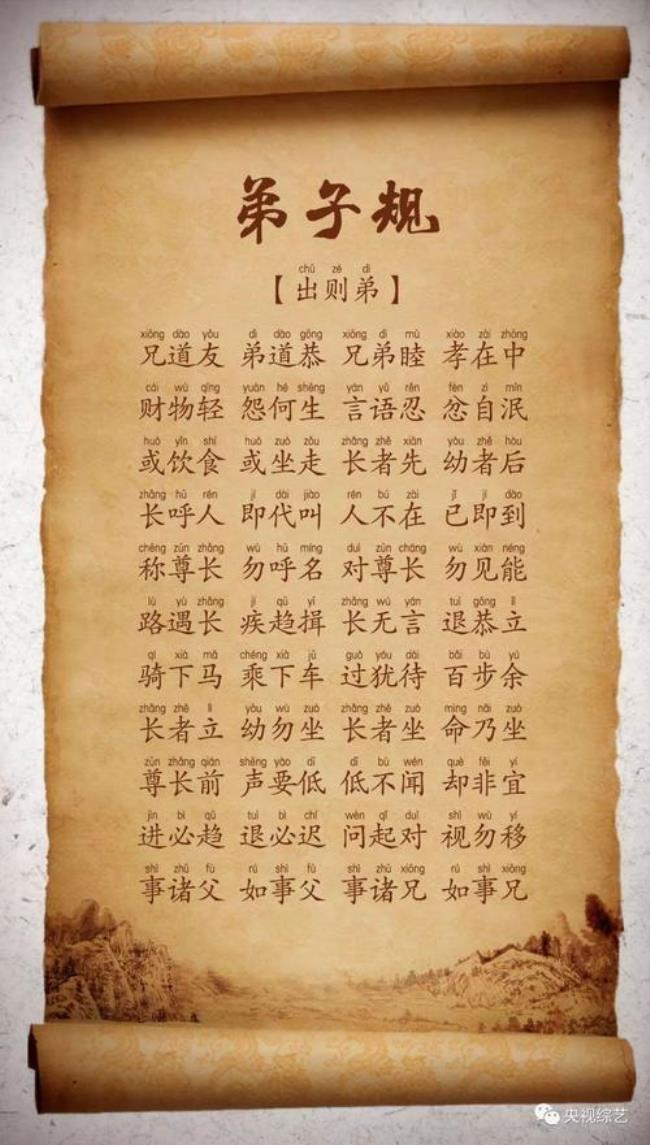 弟子规
chū zé dì
【出则弟】
xiōng dào yǒu dì dào gōng xiōng dì mù xiào zài zhōng
兄道友 弟道恭 兄弟睦 孝在中
cái wù qīng yuàn hé shēng yán yǔ rěn fèn zì mǐn
财物轻 怨何生 言语忍 忿自泯
huò yǐn shí huò zuò zǒu zhǎng zhě xiān yòu zhě hòu
或饮食 或坐走 长者先 幼者后
zhǎng hū rén jí dài jiào rén bú zài jǐ jí dào
长呼人 即代叫 人不在 己即到
chēng zūn zhǎng wù hū míng duì zūn chǎng wù xiàn néng
称尊长 勿呼名 对尊长 勿见能
lù yù zhǎng jí qū yī zhǎng wú yán tuì gōng lì
路遇长 疾趋揖 长无言 退恭立
qí xià mǎ chéng xià jū guò yóu dài bǎi bù yú
骑下马 乘下车 过犹待 百步余
zhǎng zhě lì yòu wù zuò zhǎng zhě zuò mìng nǎi zuò
长者立 幼勿坐 长者坐 命乃坐
zūn zhǎng qián shēng yào dī dī bù wén què fēi yí
尊长前 声要低 低不闻 却非宜
jìn bì qū tuì bì chí wèn qǐ duì shì wù yí
进必趋 退必迟 问起对 视勿移
shì zhū fù rú shì fù shì zhū xiōng rú shì xiōng
事诸父 如事父 事诸兄 如事兄
央视综艺